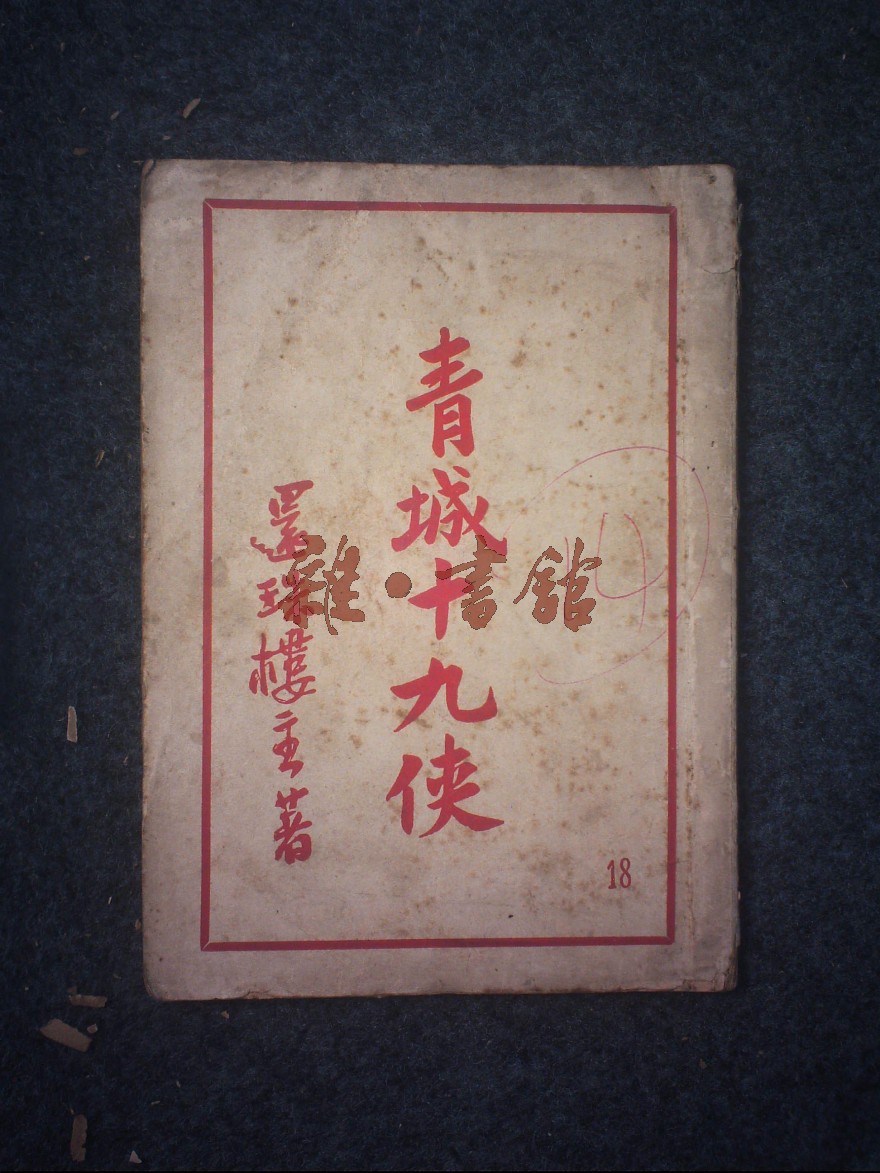 青城十九俠
還珠樓主著
雜·書館
14
18